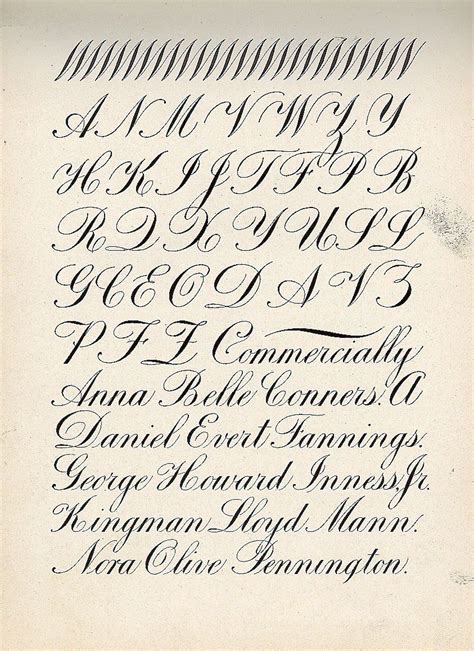 A N M V W Z Y
H K I J T F P B
R D X Y U S L
G C E O D A V Z
P F Z Commercially
Anna Belle Conners. A
Daniel Evert Fannings.
George Howard Inness, Jr.
Kingman Lloyd Mann.
Nora Olive Pennington.